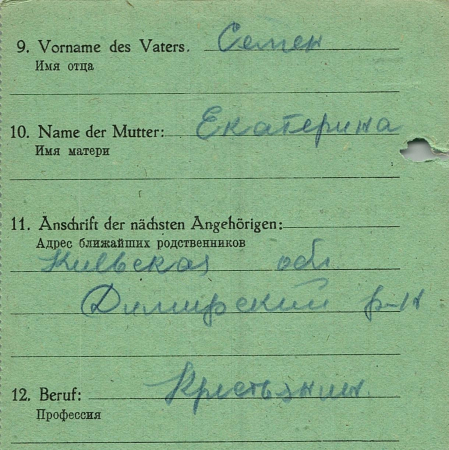 9. Vorname des Vaters. Семен
Имя отца
10. Name der Mutter: Екатерина
Имя матери
11. Anschrift der nächsten Angehörigen:
Адрес ближайших родственников
Киевская обл
Димирский р-н
12. Beruf: Крестьянин.
Профессия